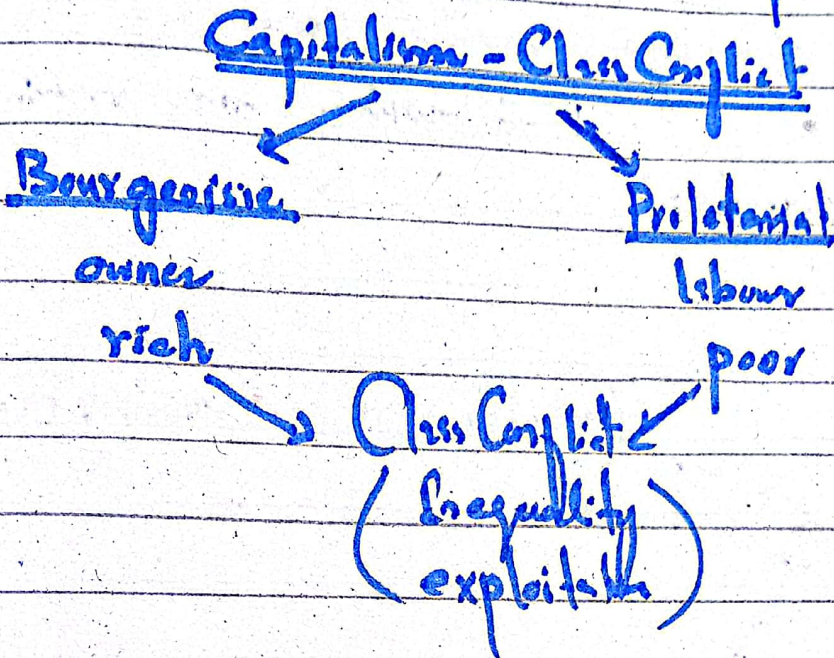 Capitalism - Class Conflict
Bourgeoisie Proletariat
owner labour
rich poor
Class Conflict
( Inequality
exploitation )